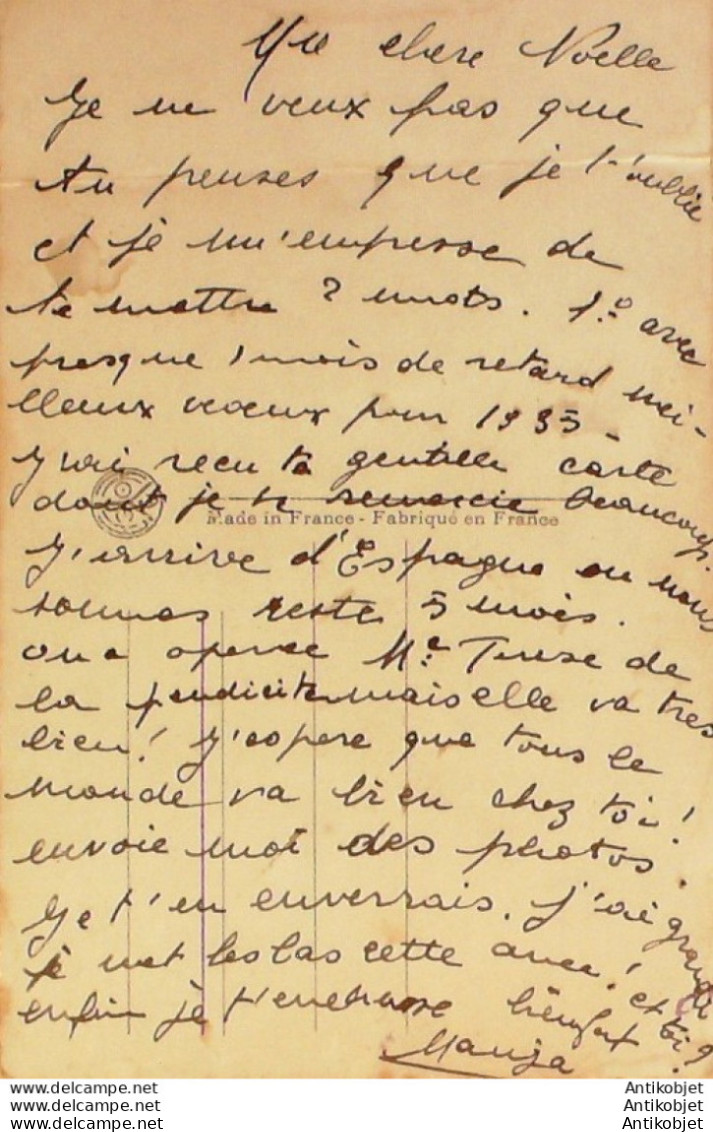 Ma chere Noelle
Je ne veux pas que
tu penses que je t'oublie
et je m'empresse de
te mettre 2 mots. 1.° avec
presque 1 mois de retard mei-
lleurs voeux pour 1935 -
J'ai recu ta gentille carte
dont je te remercie beaucoup.
Made in France - Fabriqué en France
J'arrive d'Espagne ou nous
sommes reste 5 mois.
on a operee
de
la pendicite mais elle va tres
bien! J'espere que tous le
monde va bien chez toi!
envoie moi des photos.
Je t'en enverrais. J'ai grandi
je met les bas cette annee! et toi?
enfin je t'embrasse bien fort
Antikobjet
Antikobjet
Antikobjet
vieilles cartes.com
vieilles cartes.com
vieilles cartes.com